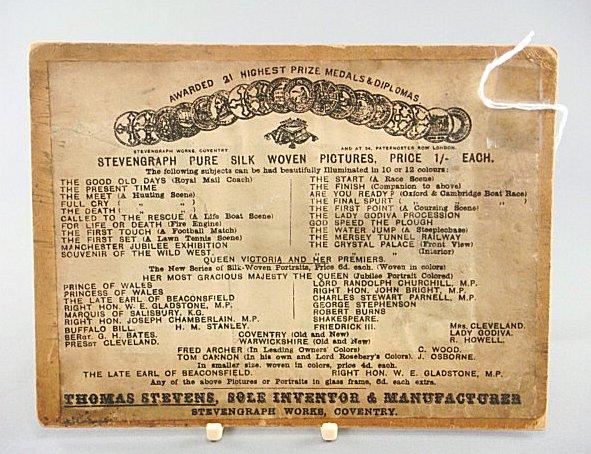 AWARDED 21 HIGHEST PRIZE MEDALS & DIPLOMAS
STEVENGRAPH WORKS, COVENTRY AND AT 54, PATERNOSTER ROW LONDON.
STEVENGRAPH PURE SILK WOVEN PICTURES, PRICE 1/- EACH.
The following subjects can be had beautifully Illuminated in 10 or 12 colours:
THE GOOD OLD DAYS (Royal Mail Coach)
THE PRESENT TIME
THE MEET (A Hunting Scene)
FULL CRY ( " " )
THE DEATH ( " " )
CALLED TO THE RESCUE (A Life Boat Scene)
FOR LIFE OR DEATH (Fire Engine)
THE FIRST TOUCH (A Football Match)
THE FIRST SET (A Lawn Tennis Scene)
MANCHESTER JUBILEE EXHIBITION
SOUVENIR OF THE WILD WEST.
THE START (A Race Scene)
THE FINISH (Companion to above)
ARE YOU READY? (Oxford & Cambridge Boat Race)
THE FINAL SPURT ( " " )
THE FIRST POINT (A Coursing Scene)
THE LADY GODIVA PROCESSION
GOD SPEED THE PLOUGH
THE WATER JUMP (A Steeplechase)
THE MERSEY TUNNEL RAILWAY
THE CRYSTAL PALACE (Front View)
" " " (Interior)
QUEEN VICTORIA AND HER PREMIERS.
The New Series of Silk-Woven Portraits, Price 6d. each. (Woven in colors)
HER MOST GRACIOUS MAJESTY THE QUEEN (Jubilee Portrait Colored)
PRINCE OF WALES
PRINCESS OF WALES
THE LATE EARL OF BEACONSFIELD
RIGHT HON. W. E. GLADSTONE, M.P.
MARQUIS OF SALISBURY, K.G.
RIGHT HON. JOSEPH CHAMBERLAIN, M.P.
LORD RANDOLPH CHURCHILL, M.P.
RIGHT HON. JOHN BRIGHT, M.P.
CHARLES STEWART PARNELL, M.P.
GEORGE STEPHENSON
ROBERT BURNS
SHAKESPEARE.
BUFFALO BILL. H. M. STANLEY. FRIEDRICK III. MRS. CLEVELAND.
SERGT. G. H. BATES. COVENTRY (Old and New) LADY GODIVA.
PRESDT CLEVELAND. WARWICKSHIRE (Old and New) R. HOWELL.
FRED ARCHER (In Leading Owners' Colors) C. WOOD.
TOM CANNON (In his own and Lord Rosebery's Colors). J. OSBORNE.
In smaller size, woven in colors, price 4d. each.
THE LATE EARL OF BEACONSFIELD. RIGHT HON. W. E. GLADSTONE, M.P.
Any of the above Pictures or Portraits in glass frame, 6d. each extra.
THOMAS STEVENS, SOLE INVENTOR & MANUFACTURER
STEVENGRAPH WORKS, COVENTRY.